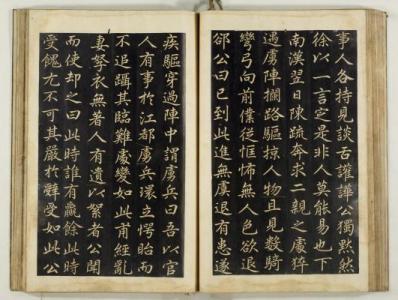 事人各持見談舌讙譁公獨黙然
徐以一言定是非人莫能易也下
南漢翌日陳疏奔求二親之處猝
遇虜陣攔路驅掠人物且見數騎
彎弓向前僕從恇怖無人色欲退
公曰已到此進無虞退有患遂
疾驅穿過陣中謂虜兵曰吾以官
人有事於江都虜兵環立愕眙而
不追躡其臨難處變如此甫經亂
妻孥衣無著人有遺以絮者公聞
而使却之曰此時誰有贏餘此時
受餽尤不可其嚴於辭受如此公